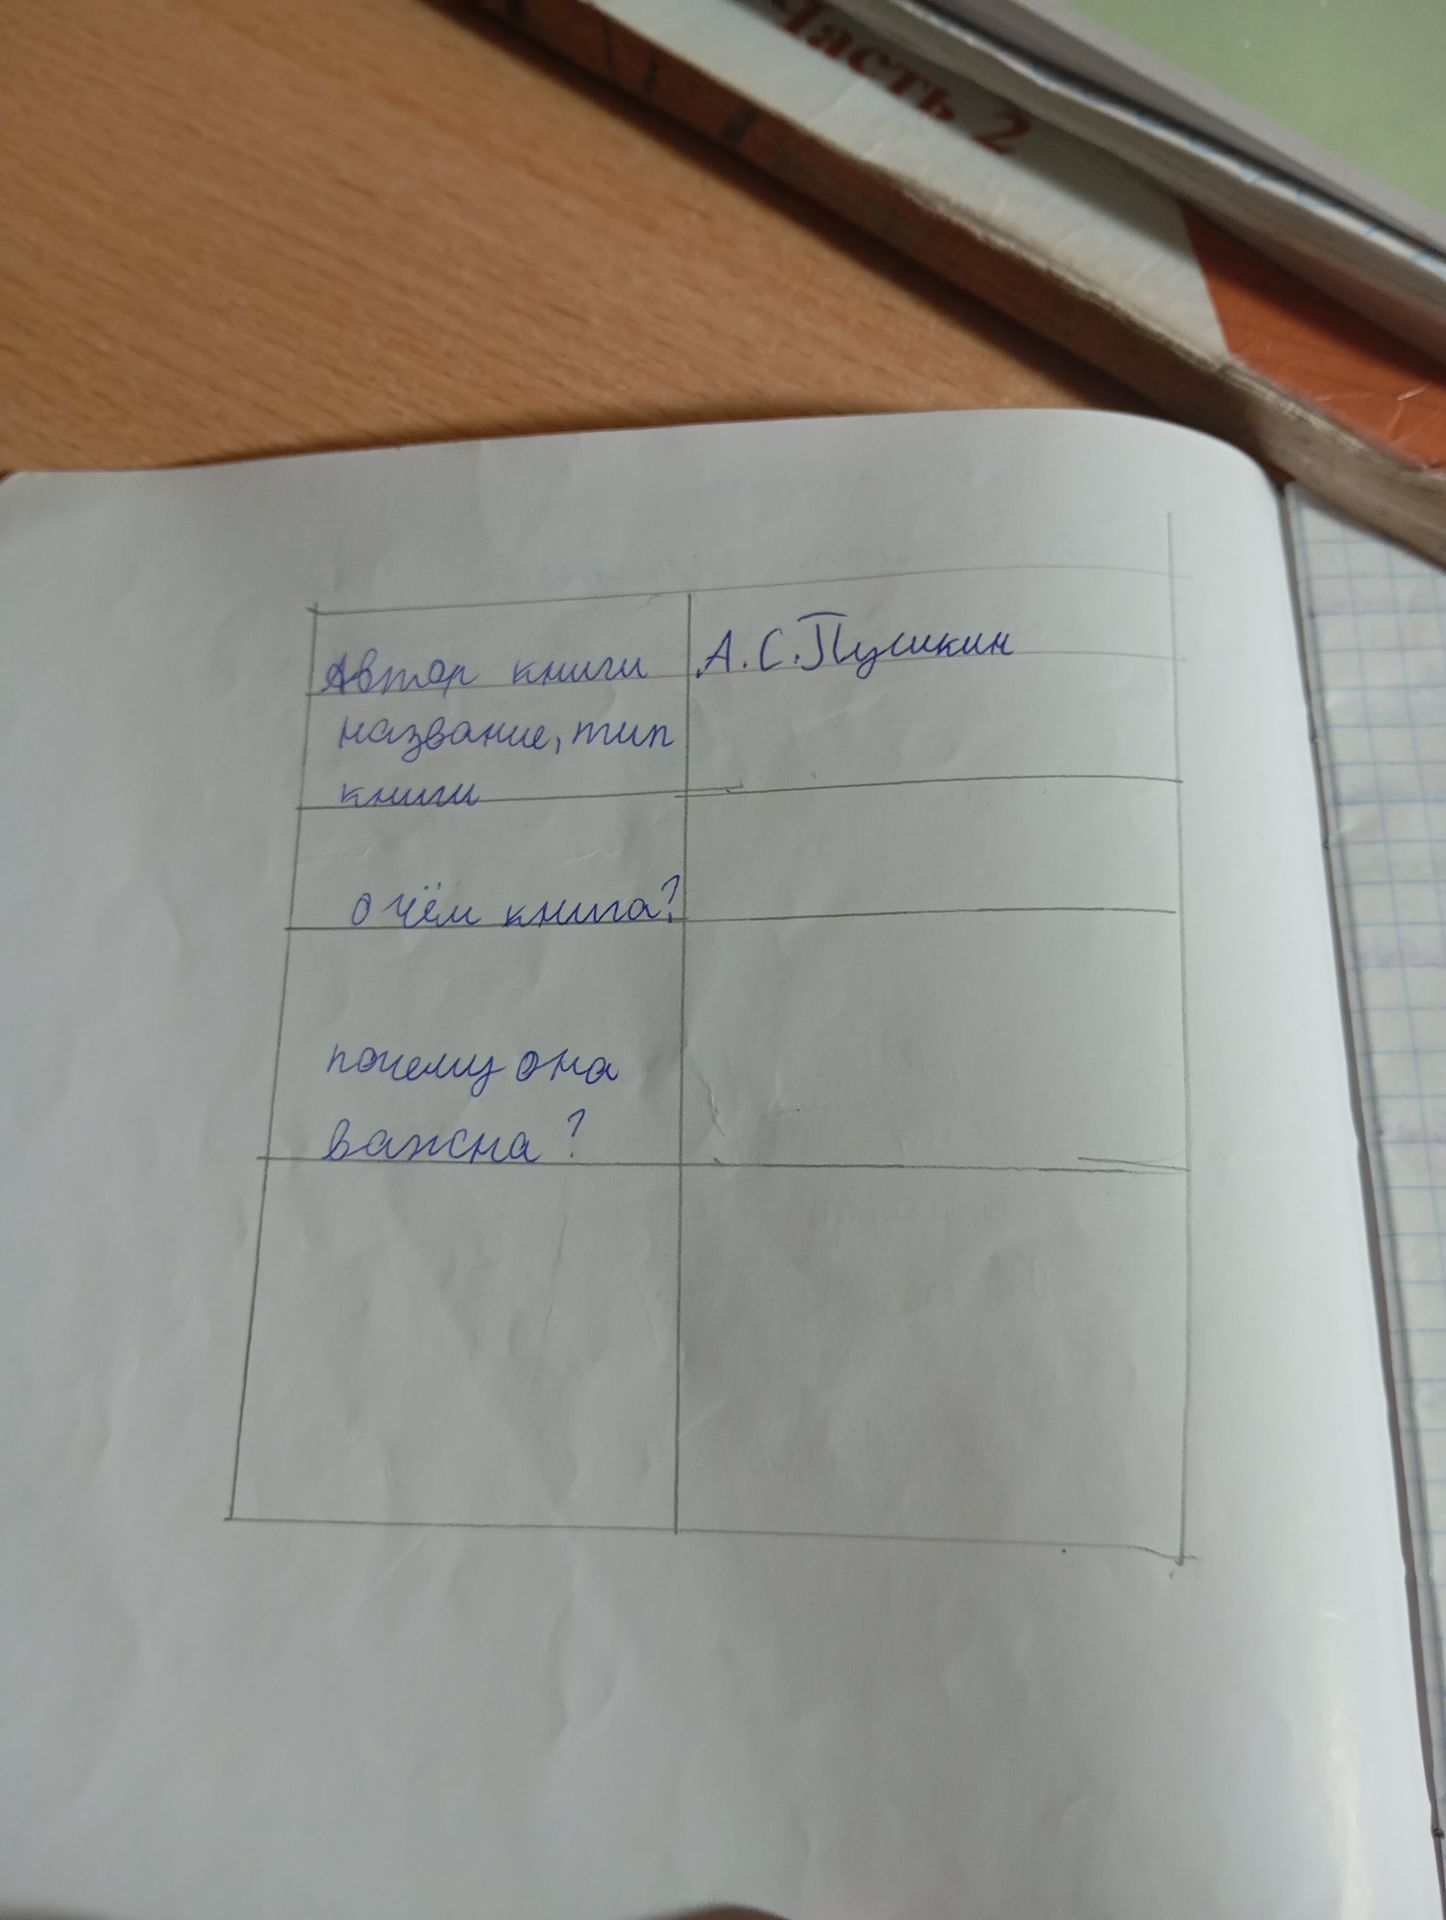 Часть 2
Автор книги А.С.Пушкин
название, тип
книги
о чём книга?
почему она
важна?